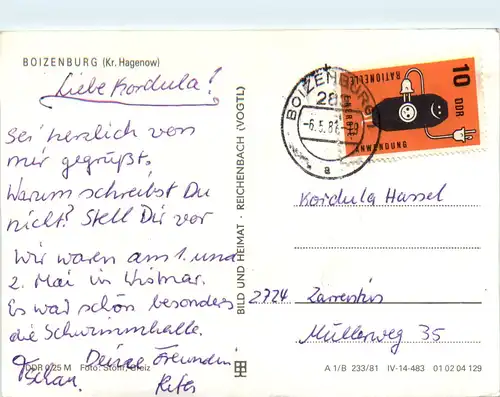 BOIZENBURG (Kr. Hagenow)
Liebe Kordula!
Sei herzlich von
mir gegrüßt.
Warum schreibst Du
nicht? Stell Dir vor
Wir waren am 1. und
2. Mai in Wismar.
Es war schön besonders
die Schwimmhalle.
Deine Freundin
DDR 0,25 M Foto: Stöhr, Greiz
BILD UND HEIMAT · REICHENBACH (VOGTL)
BOIZENBURG
283
a
10
DDR
RATIONELLE
ENERGIE
ANWENDUNG
Kordula Hassel
2724 Zarrentin
Müllerweg 35
A 1/B 233/81 IV-14-483 01 02 04 129